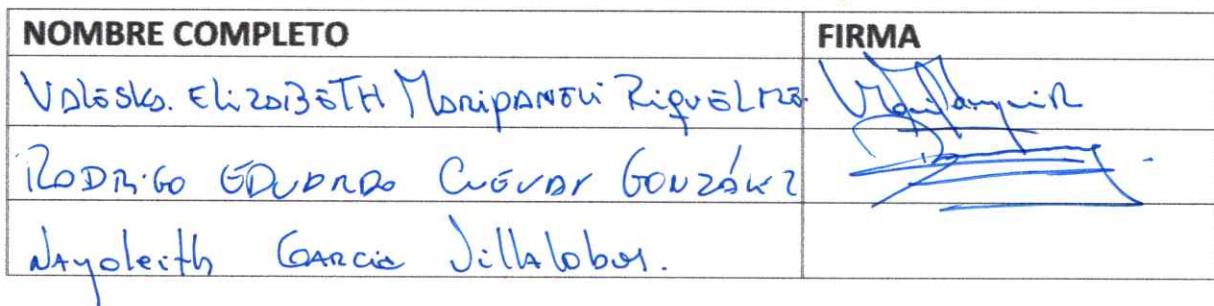 NOMBRE COMPLETO FIRMA
Valeska Elizabeth Maripangui Riquelme.
Rodrigo Eduardo Cuevas González
Nayoleith Garcia Villalobos.